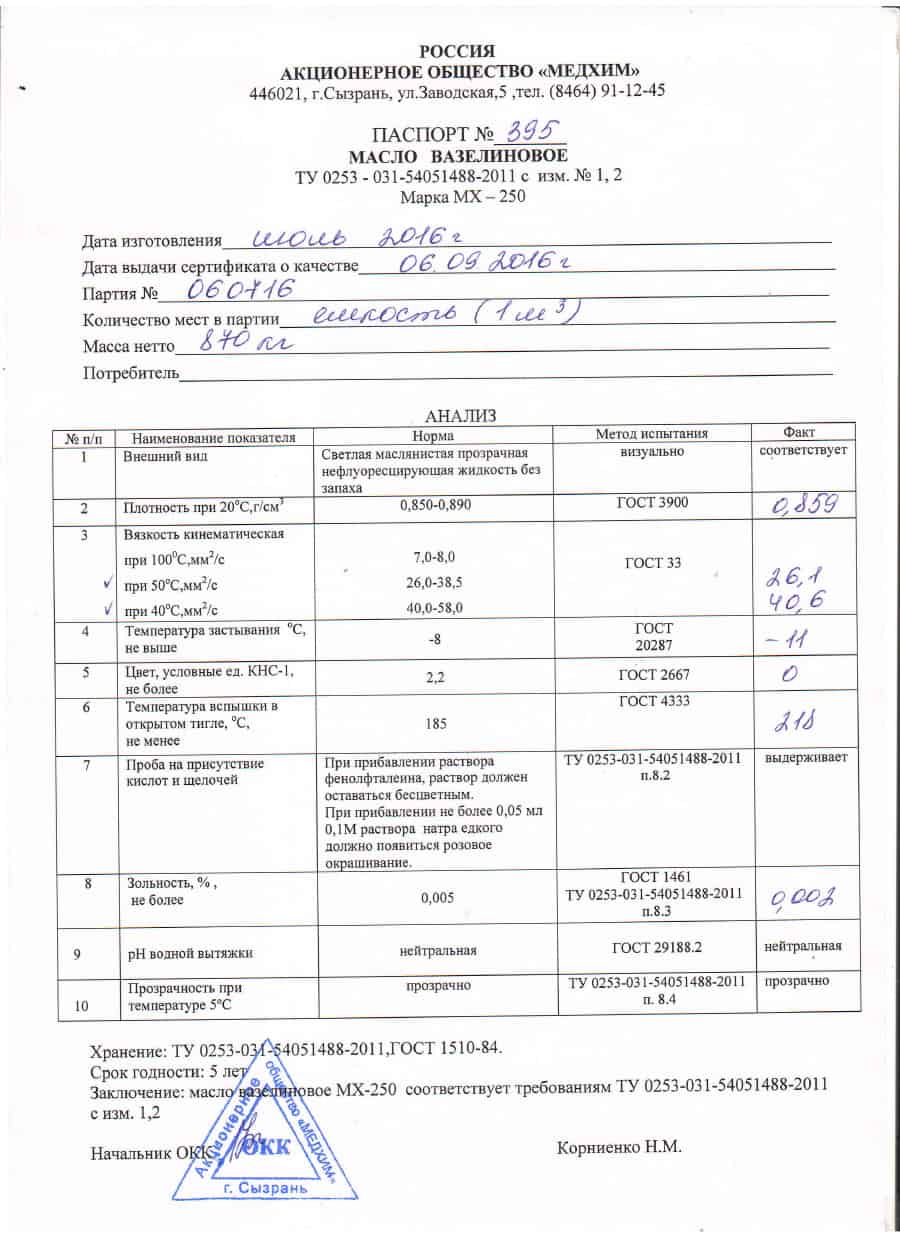 РОССИЯ
АКЦИОНЕРНОЕ ОБЩЕСТВО «МЕДХИМ»
446021, г.Сызрань, ул.Заводская,5 ,тел. (8464) 91-12-45
ПАСПОРТ № 395
МАСЛО ВАЗЕЛИНОВОЕ
ТУ 0253 - 031-54051488-2011 с изм. № 1, 2
Марка МХ – 250
Дата изготовления июль 2016 г
Дата выдачи сертификата о качестве 06.09.2016 г
Партия № 060716
Количество мест в партии емкость (1 м³)
Масса нетто 870 кг
Потребитель
АНАЛИЗ
№ п/п Наименование показателя Норма Метод испытания Факт
1 Внешний вид Светлая маслянистая прозрачная визуально соответствует
нефлуоресцирующая жидкость без
запаха
2 Плотность при 20°С,г/см³ 0,850-0,890 ГОСТ 3900 0,859
3 Вязкость кинематическая
при 100⁰С,мм²/с 7,0-8,0 ГОСТ 33
✓ при 50°С,мм²/с 26,0-38,5 26,1
✓ при 40°С,мм²/с 40,0-58,0 40,6
4 Температура застывания °С, -8 ГОСТ -11
не выше 20287
5 Цвет, условные ед. КНС-1, 2,2 ГОСТ 2667 0
не более
6 Температура вспышки в ГОСТ 4333
открытом тигле, °С, 185 218
не менее
7 Проба на присутствие При прибавлении раствора ТУ 0253-031-54051488-2011 выдерживает
кислот и щелочей фенолфталеина, раствор должен п.8.2
оставаться бесцветным.
При прибавлении не более 0,05 мл
0,1М раствора натра едкого
должно появиться розовое
окрашивание.
8 Зольность, % , 0,005 ГОСТ 1461 0,002
не более ТУ 0253-031-54051488-2011
п.8.3
9 рН водной вытяжки нейтральная ГОСТ 29188.2 нейтральная
10 Прозрачность при прозрачно ТУ 0253-031-54051488-2011 прозрачно
температуре 5°С п. 8.4
Хранение: ТУ 0253-031-54051488-2011,ГОСТ 1510-84.
Срок годности: 5 лет
Заключение: масло вазелиновое МХ-250 соответствует требованиям ТУ 0253-031-54051488-2011
с изм. 1,2
Начальник ОКК Корниенко Н.М.
Акционерное
общество «МЕДХИМ»
ОКК
г. Сызрань